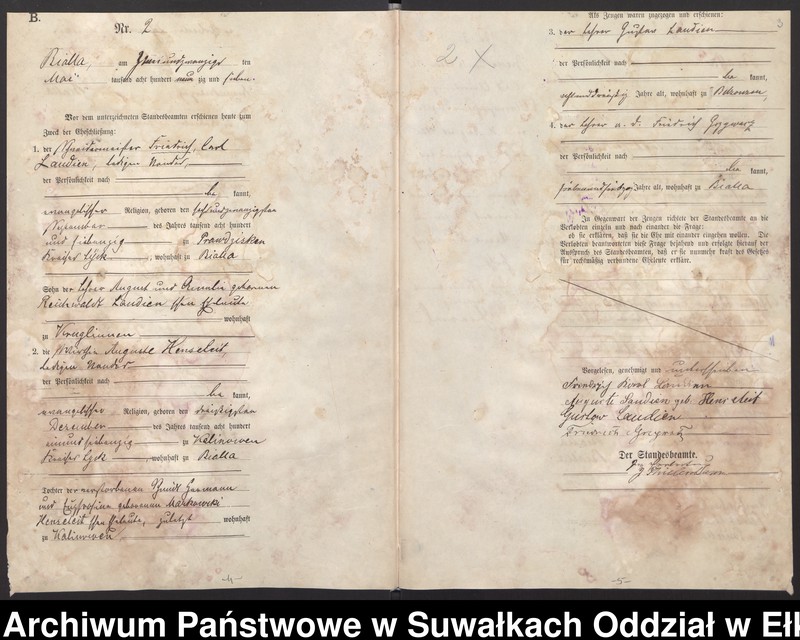 B.
Nr. 2
Bialla, am zweiundzwanzigsten
Mai tausend acht hundert neunzig und sieben.
Vor dem unterzeichneten Standesbeamten erschienen heute zum
Zweck der Eheschließung:
1. der Schneidermeister Friedrich, Carl
Landien, ledigen Standes,
der Persönlichkeit nach
be kannt,
evangelischer Religion, geboren den
November des Jahres tausend acht hundert
und siebenzig zu Prawdzisken
Kreises Lyck, wohnhaft zu Bialla
Sohn der Lehrer August und Amalie geborenen
Reichwaldt Landien'schen Eheleute
wohnhaft
zu Kruglinnen
2. die Auguste Henseleit,
ledigen Standes
der Persönlichkeit nach
be kannt,
evangelischer Religion, geboren den dreißigsten
Dezember des Jahres tausend acht hundert
einundsiebenzig zu Kallinowen
Kreises Lyck, wohnhaft zu Bialla
Tochter der verstorbenen Schmidt Hermann
und Euphrosine geborenen Markowski
Henseleit'schen Eheleute, zuletzt wohnhaft
zu Kallinowen
-4-
2 X
3
Als Zeugen waren zugezogen und erschienen:
3. der Lehrer Gustav Landien
der Persönlichkeit nach
be kannt,
achtunddreißig Jahre alt, wohnhaft zu
4. der Lehrer a. D. Friedrich
der Persönlichkeit nach
be kannt,
Jahre alt, wohnhaft zu Bialla
In Gegenwart der Zeugen richtete der Standesbeamte an die
Verlobten einzeln und nach einander die Frage:
ob sie erklären, daß sie die Ehe mit einander eingehen wollen. Die
Verlobten beantworteten diese Frage bejahend und erfolgte hierauf der
Ausspruch des Standesbeamten, daß er sie nunmehr kraft des Gesetzes
für rechtmäßig verbundene Eheleute erkläre.
Vorgelesen, genehmigt und unterschrieben
Friedrich Karl Landien
Auguste Landien geb. Henseleit
Gustav Landien
Friedrich
Der Standesbeamte.
-5-
Archiwum Państwowe w Suwałkach Oddział w Eł